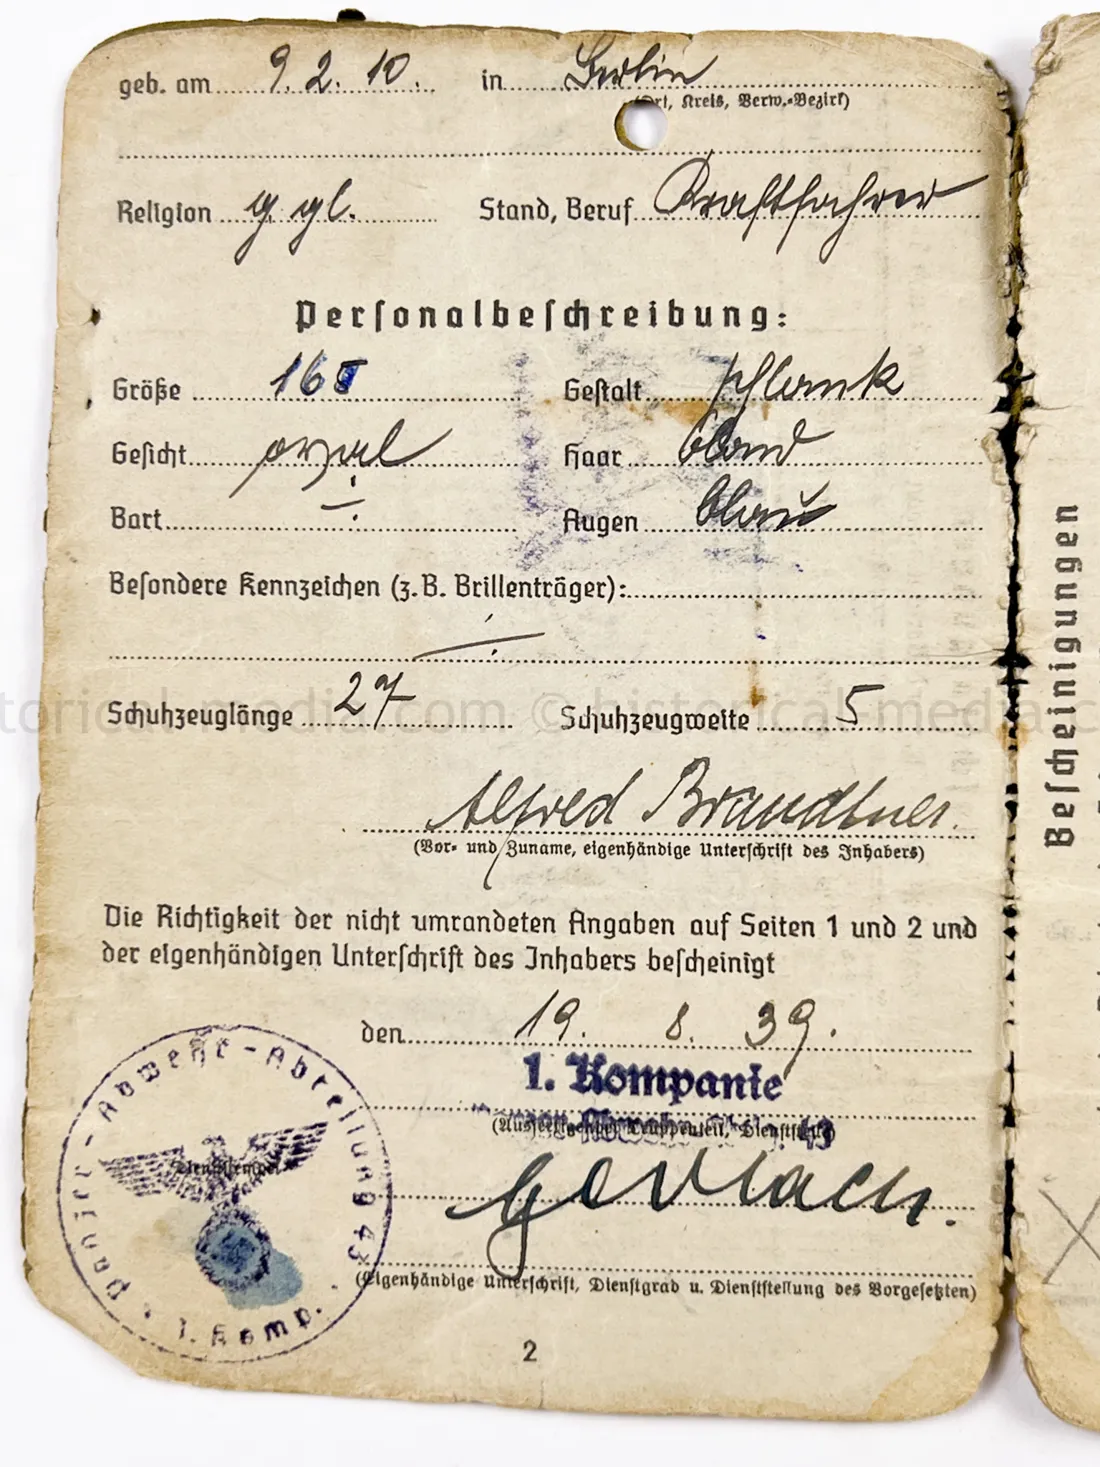 geb. am 9. 2. 10. in Berlin
(Ort, Kreis, Verw.-Bezirk)
Religion g. gl. Stand, Beruf Kraftfahrer
Personalbeschreibung:
Größe 168 Gestalt schlank
Gesicht oval Haar blond
Bart ÷ Augen blau
Besondere Kennzeichen (z. B. Brillenträger):
÷
Schuhzeuglänge 27 Schuhzeugweite 5
historical-media.com © historical-media.c
Alfred Brandtner.
(Vor- und Zuname, eigenhändige Unterschrift des Inhabers)
Die Richtigkeit der nicht umrandeten Angaben auf Seiten 1 und 2 und
der eigenhändigen Unterschrift des Inhabers bescheinigt
den 19. 8. 39.
1. Kompanie
(Ausfertigender Truppenteil, Dienststelle)
43
Gerlach.
(Eigenhändige Unterschrift, Dienstgrad u. Dienststellung des Vorgesetzten)
Panzer-Abwehr-Abteilung 43
Dienststempel
1. Komp.
2
Bescheinigungen